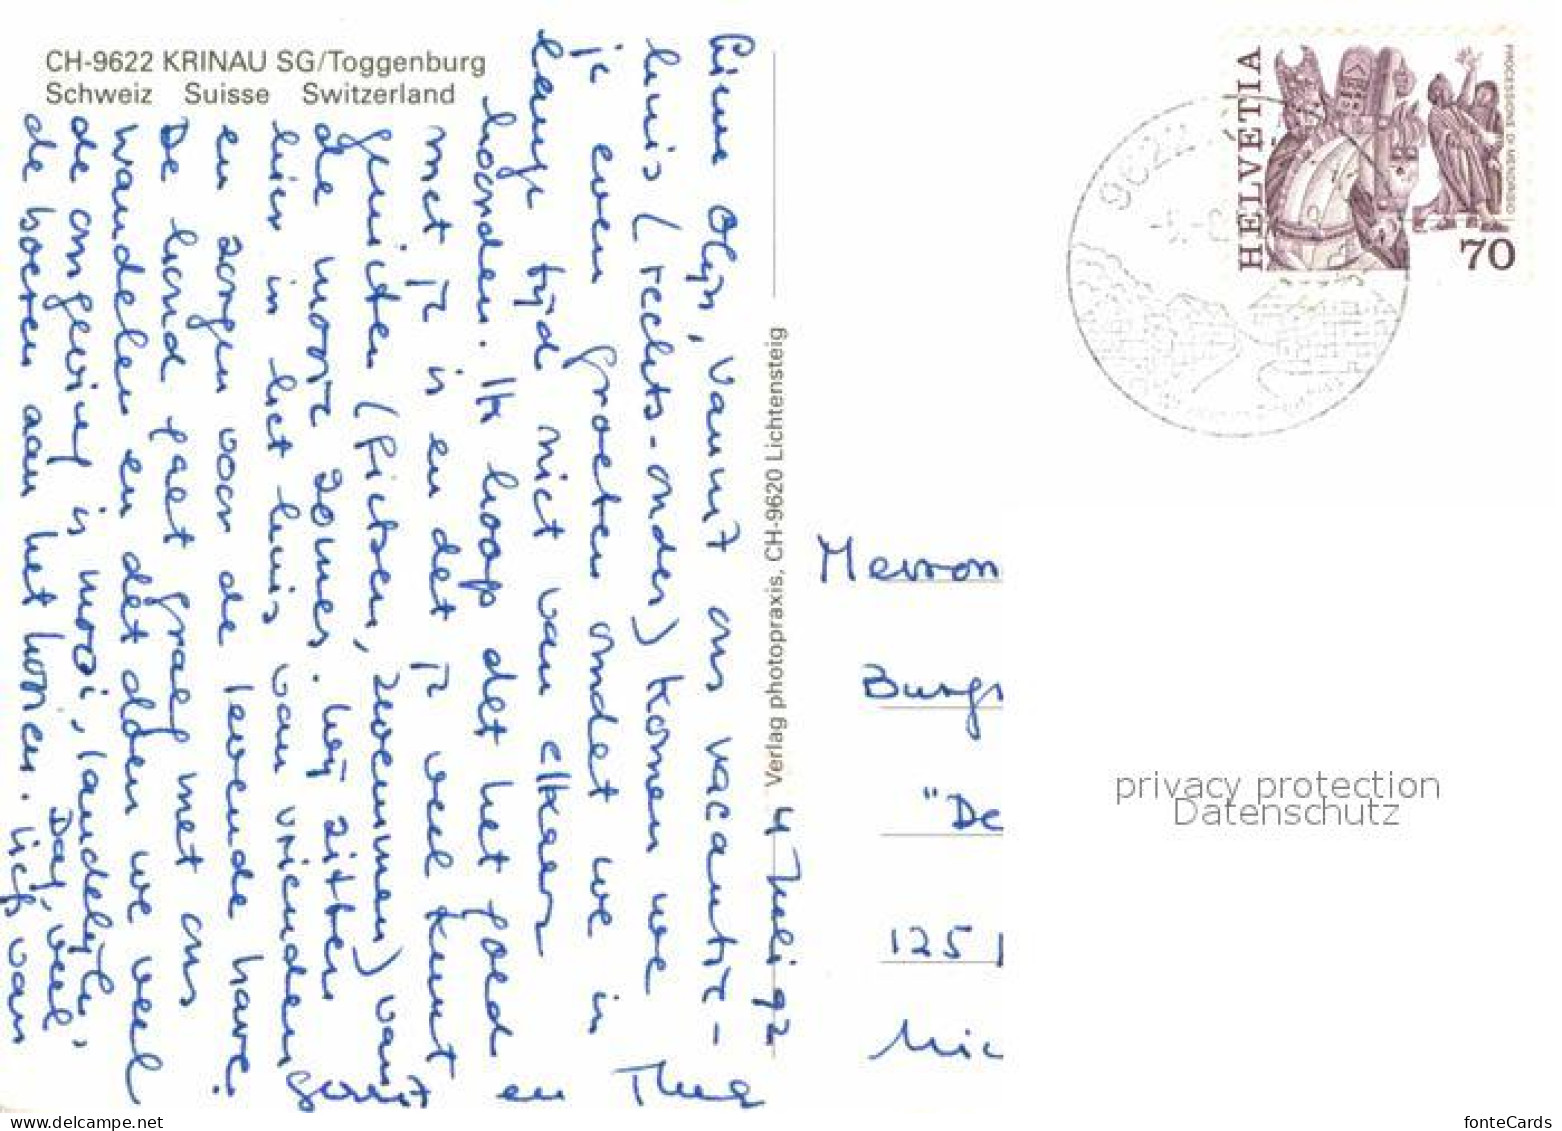 CH-9622 KRINAU SG/Toggenburg
Schweiz Suisse Switzerland
Verlag photopraxis, CH-9620 Lichtensteig
HELVÉTIA
PROCESSIONE DI MENDRISIO
70
9622
4 Juli 92
vanuit ons vacantie-
huis (rechts-onder) komen we
je even groeten omdat we in
lange tijd niet van elkaar
hoorden. Ik hoop dat het goed
met je is en dat je veel kunt
genieten (fietsen, zwemmen) van
de mooie zomer. Wij zitten
hier in het huis van vrienden
en zorgen voor de levende have.
De hond gaet graag met ons
wandelen en dat doen we veel
de omgeving is mooi, landelijk,
de boeren aan het hooien. Dag, veel
liefs van
Gerrit en Thea
Mevron
Burgs
"De
125
privacy protection
Datenschutz
www.delcampe.net
fonteCards